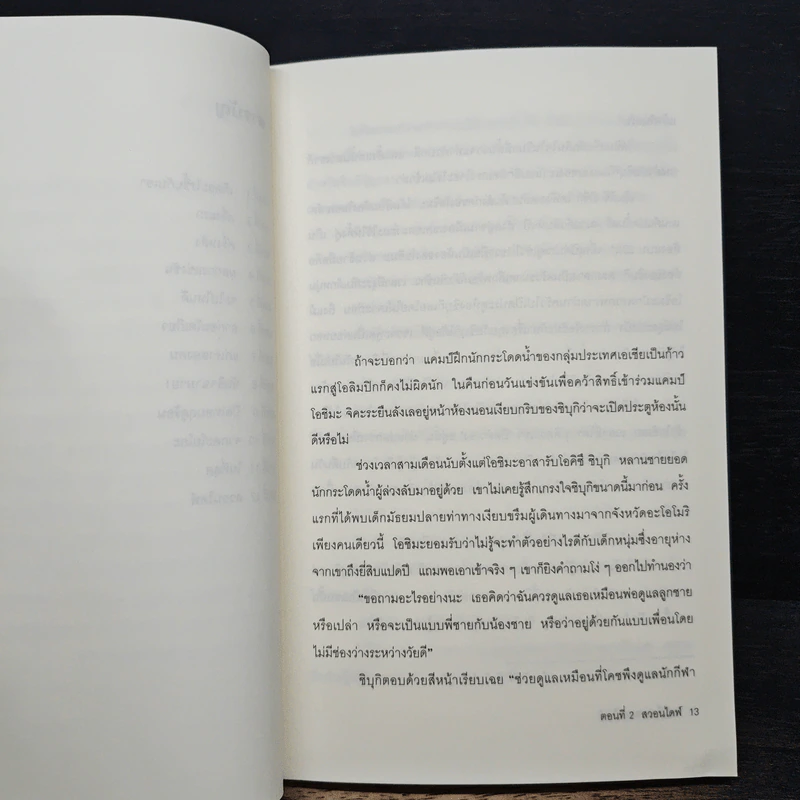 ถ้าจะบอกว่า แคมป์ฝึกนักกระโดดน้ำของกลุ่มประเทศเอเชียเป็นก้าว
แรกสู่โอลิมปิกก็คงไม่ผิดนัก ในคืนก่อนวันแข่งขันเพื่อคว้าสิทธิ์เข้าร่วมแคมป์
โอชิมะ จิคะระยืนลังเลอยู่หน้าห้องนอนเงียบกริบของชิบุกิว่าจะเปิดประตูห้องนั้น
ดีหรือไม่
ช่วงเวลาสามเดือนนับตั้งแต่โอชิมะอาสารับโอคิซึ ชิบุกิ หลานชายยอด
นักกระโดดน้ำผู้ล่วงลับมาอยู่ด้วย เขาไม่เคยรู้สึกเกรงใจชิบุกิขนาดนี้มาก่อน ครั้ง
แรกที่ได้พบเด็กมัธยมปลายท่าทางเงียบขรึมผู้เดินทางมาจากจังหวัดอะโอโมริ
เพียงคนเดียวนี้ โอชิมะยอมรับว่าไม่รู้จะทำตัวอย่างไรดีกับเด็กหนุ่มซึ่งอายุห่าง
จากเขาถึงยี่สิบแปดปี แถมพอเอาเข้าจริง ๆ เขาก็ยิงคำถามโง่ ๆ ออกไปทำนองว่า
“ขอถามอะไรอย่างนะ เธอคิดว่าฉันควรดูแลเธอเหมือนพ่อดูแลลูกชาย
หรือเปล่า หรือจะเป็นแบบพี่ชายกับน้องชาย หรือว่าอยู่ด้วยกันแบบเพื่อนโดย
ไม่มีช่องว่างระหว่างวัยดี”
ชิบุกิตอบด้วยสีหน้าเรียบเฉย “ช่วยดูแลเหมือนที่โคชพึงดูแลนักกีฬา
ตอนที่ 2 สวอนไดฟ์ 13